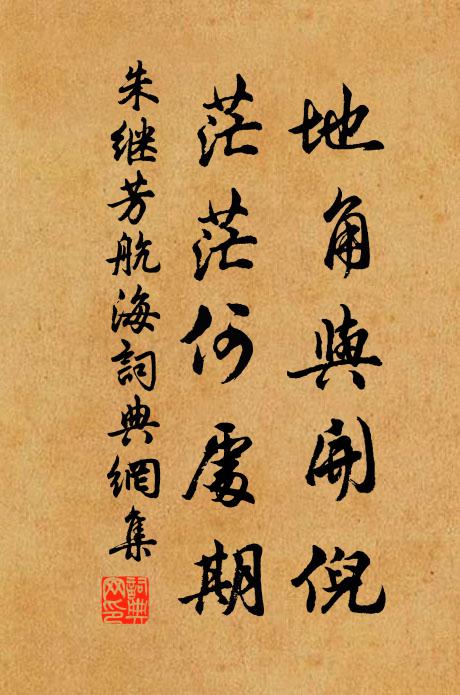 地角與開倪
茫茫何處期
朱继芳航海詞典網集
詞典網印